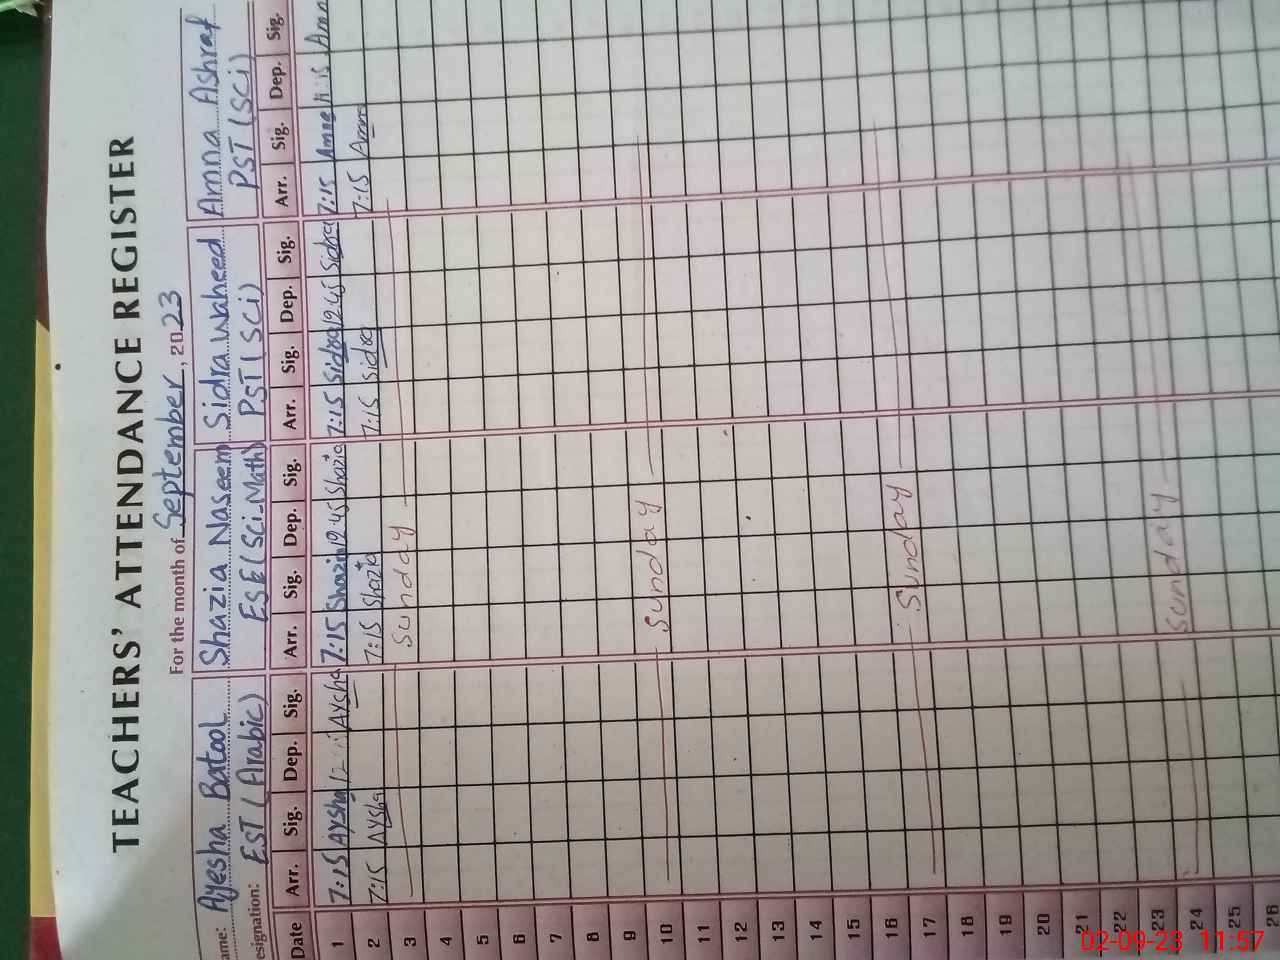 TEACHERS' ATTENDANCE REGISTER
For the month of September, 2023
ame: Ayesha Batool Shazia Naseem Sidra Waheed Amna Ashraf
esignation: EST (Arabic) ESE (Sci-Math) PST (Sci) PST (Sci)
Date Arr. Sig. Dep. Sig. Arr. Sig. Dep. Sig. Arr. Sig. Dep. Sig. Arr. Sig. Dep. Sig.
1 7:15 Aysha Aysha 7:15 Shazia 12:45 Shazia 7:15 Sidra 12:45 Sidra 7:15 Amna Amn
2 7:15 Aysha 7:15 Shazia 7:15 Sidra 7:15 Amna
3 Sunday
4
5
6
7
8
9
10 Sunday
11
12
13
14
15
16
17 Sunday
18
19
20
21
22
23
24 Sunday
25
26
02-09-23 11:57